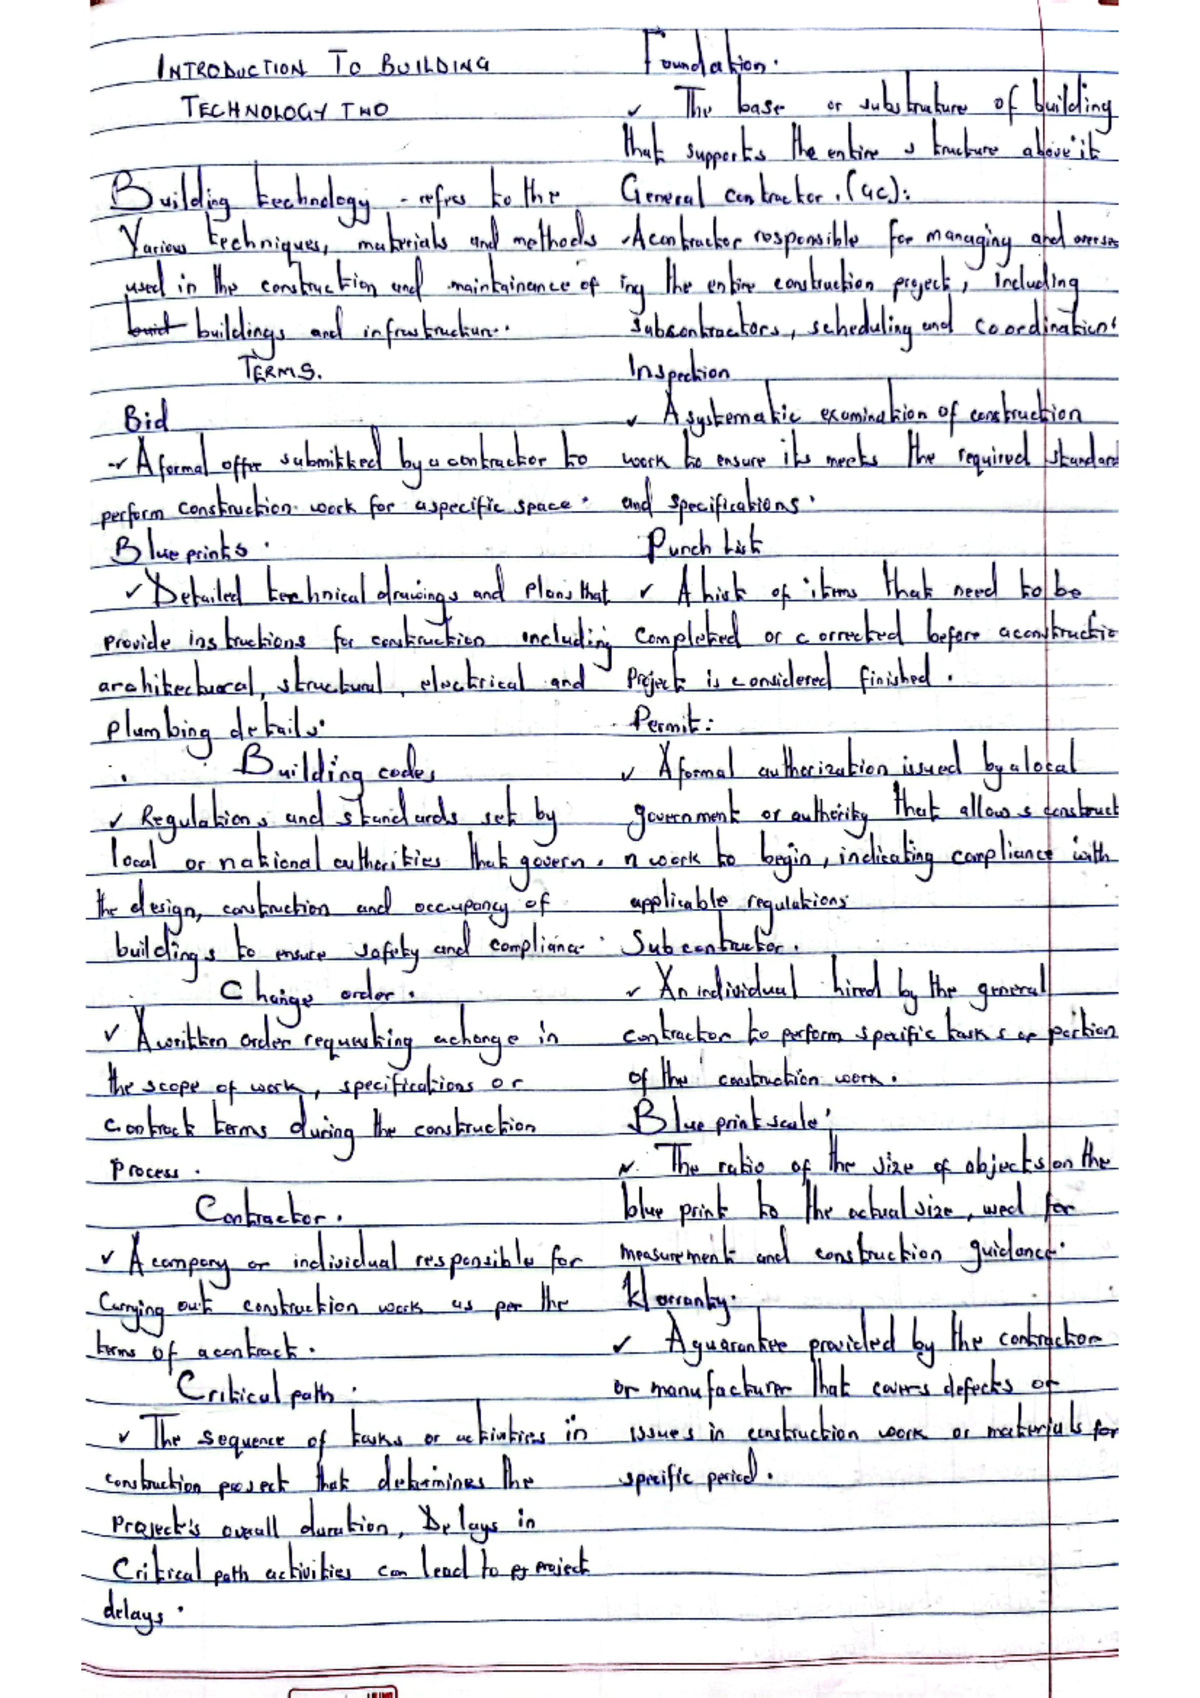 INTRODUCTION TO BUILDING
TECHNOLOGY TWO
Building technology - refres to the
Various techniques, materials and methods
used in the construction and maintainance of
buildings and infrustructure.
TERMS.
Bid
✓ A formal offer submitted by a contractor to
perform construction work for a specific space.
Blue prints.
✓ Detailed technical drawings and plans that
provide instructions for construction including
architectural, structural, electrical and
plumbing details.
Building codes
✓ Regulations and standards set by
local or national authorities that govern
the design, construction and occupancy of
buildings to ensure safety and compliance.
Change order.
✓ A written order requesting a change in
the scope of work, specifications or
contract terms during the construction
Process.
Contractor.
✓ A company or individual responsible for
Carrying out construction work as per the
terms of a contract.
Critical path.
✓ The sequence of tasks or activities in
construction project that determines the
Project's overall duration, Delays in
Critical path activities can lead to project
delays.
Foundation.
✓ The base or substructure of building
that supports the entire structure above it
General contractor. (GC):
✓ A contractor responsible for managing and oversee
ing the entire construction project, including
subcontractors, scheduling and coordination.
Inspection
✓ A systematic examination of construction
work to ensure its meets the required standard
and specifications.
Punch List
✓ A list of items that need to be
Completed or corrected before a constructio
Project is considered finished.
Permit:
✓ A formal authorization issued by a local
government or authority that allows construct
n work to begin, indicating compliance with
applicable regulations
Subcontractor.
✓ An individual hired by the general
contractor to perform specific tasks or portion
of the construction work.
Blue print scale:
✓ The ratio of the size of objects on the
blue print to the actual size, used for
measurement and construction guidance.
Warranty.
✓ A guarantee provided by the contractor
or manufacturer that covers defects or
issues in construction work or materials for
specific period.